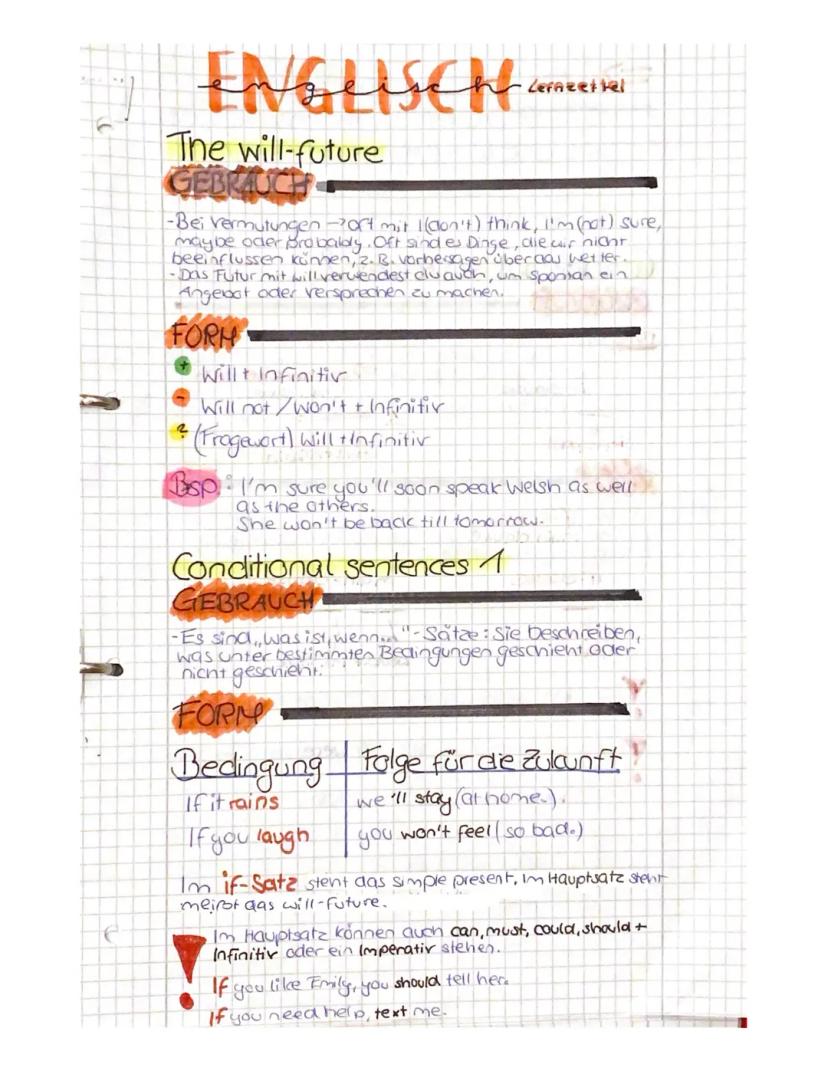 ENGLISCH
englisch Lernzettel
The will-future
GEBRAUCH
-Bei Vermutungen → oft mit I(don't) think, I'm (not) sure,
maybe oder probably. Oft sind es Dinge, die wir nicht
beeinflussen können, z.B. vorhersagen über das Wetter.
-Das Futur mit will verwendest du auch, um spontan ein
Angebot oder versprechen zu machen.
FORM
+ Will + Infinitiv
- Will not / won't + Infinitiv
? (Fragewort) Will + Infinitiv
Bsp.: I'm sure you'll soon speak Welsh as well
as the others.
She won't be back till tomorrow.
Conditional sentences 1
GEBRAUCH
-Es sind „Was ist, wenn..."-Sätze: Sie beschreiben,
was unter bestimmten Bedingungen geschieht oder
nicht geschieht.
FORM
Bedingung Folge für die Zukunft
If it rains we'll stay (at home.).
If you laugh you won't feel (so bad.)
Im if-Satz steht das simple present, im Hauptsatz steht
meist das will-future.
! Im Hauptsatz können auch can, must, could, should +
Infinitiv oder ein Imperativ stehen.
If you like Emily, you should tell her.
If you need help, text me.